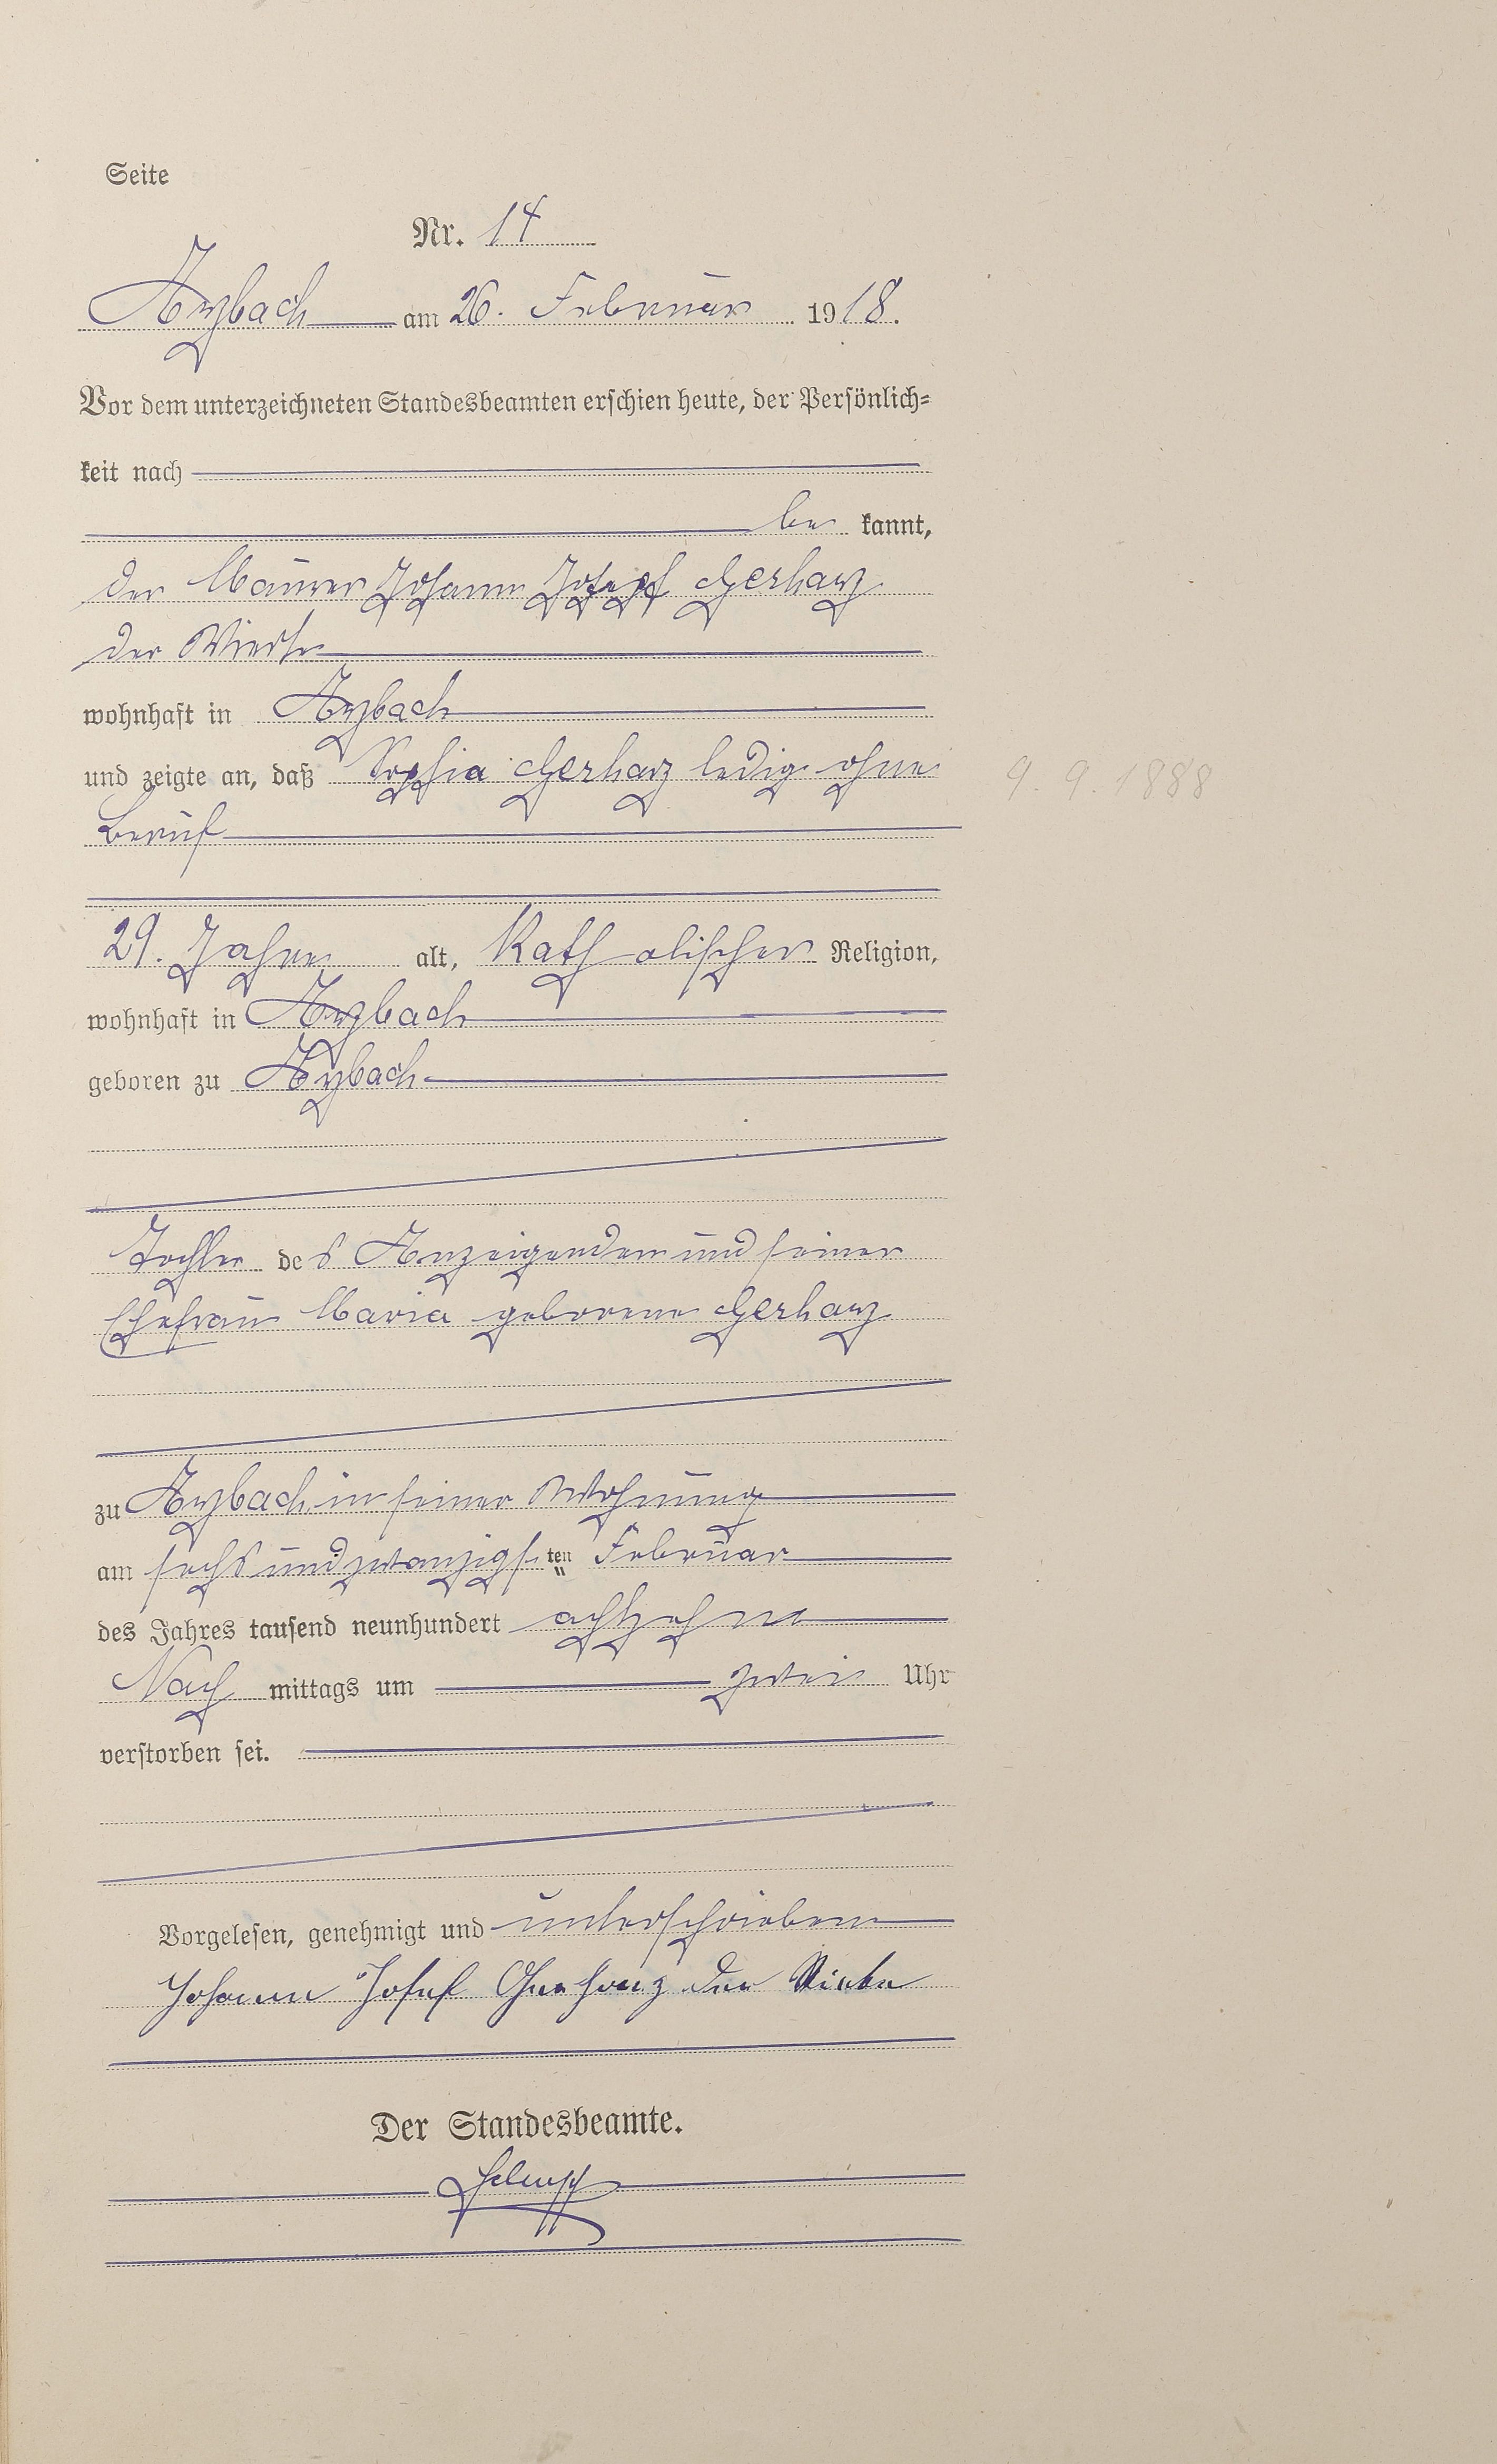 Seite
Nr. 14
Arzbach am 26. Februar 1918.
Vor dem unterzeichneten Standesbeamten erschien heute, der Persönlich-
keit nach
be kannt,
der Maurer Johann Josepf Gerharz
der Vierte
wohnhaft in Arzbach
und zeigte an, daß Sophia Gerharz ledig ohne
9. 9. 1888
Beruf
29. Jahre alt, Kath olischer Religion,
wohnhaft in Arzbach
geboren zu Arzbach
Tochter des Anzeigenden und seiner
Ehefrau Maria geborene Gerharz
zu Arzbach in seiner Wohnung
am sechs und zwanzigsten Februar
des Jahres tausend neunhundert achtzehn
Nach mittags um zwei Uhr
verstorben sei.
Vorgelesen, genehmigt und unterschrieben
Johann Josef Gerharz der Vierte
Der Standesbeamte.